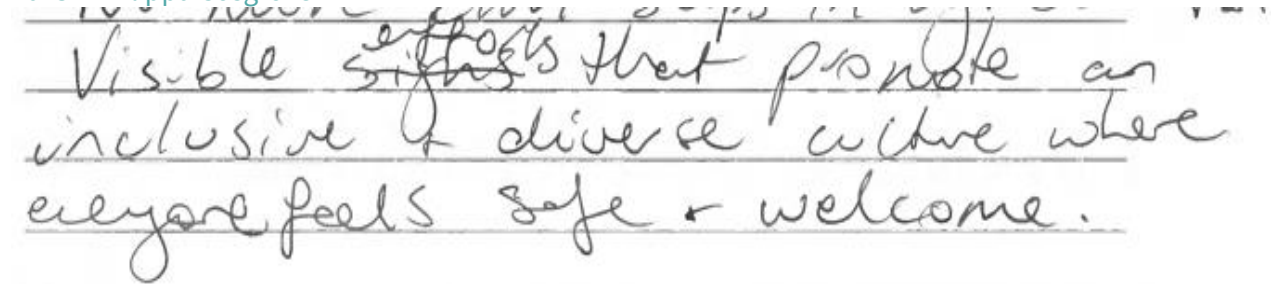 Visible efforts that promote an
inclusive & diverse culture where
everyone feels safe + welcome.